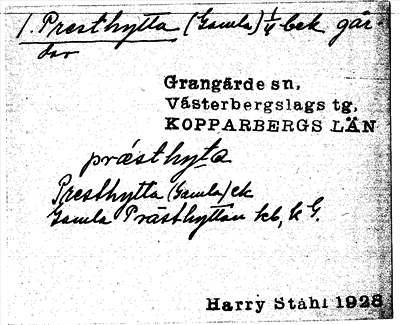 1. Presthytta (Gamla) 1/4 bek går-
dar
Grangärde sn,
Västerbergslags tg,
KOPPARBERGS LÄN
præsthyta
Presthytta (Gamla) ek
Gamla Prästhyttan kb, k G.
Harry Ståhl 1928